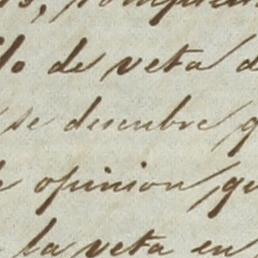 de veta
se descubre
opinion, qu
la veta en